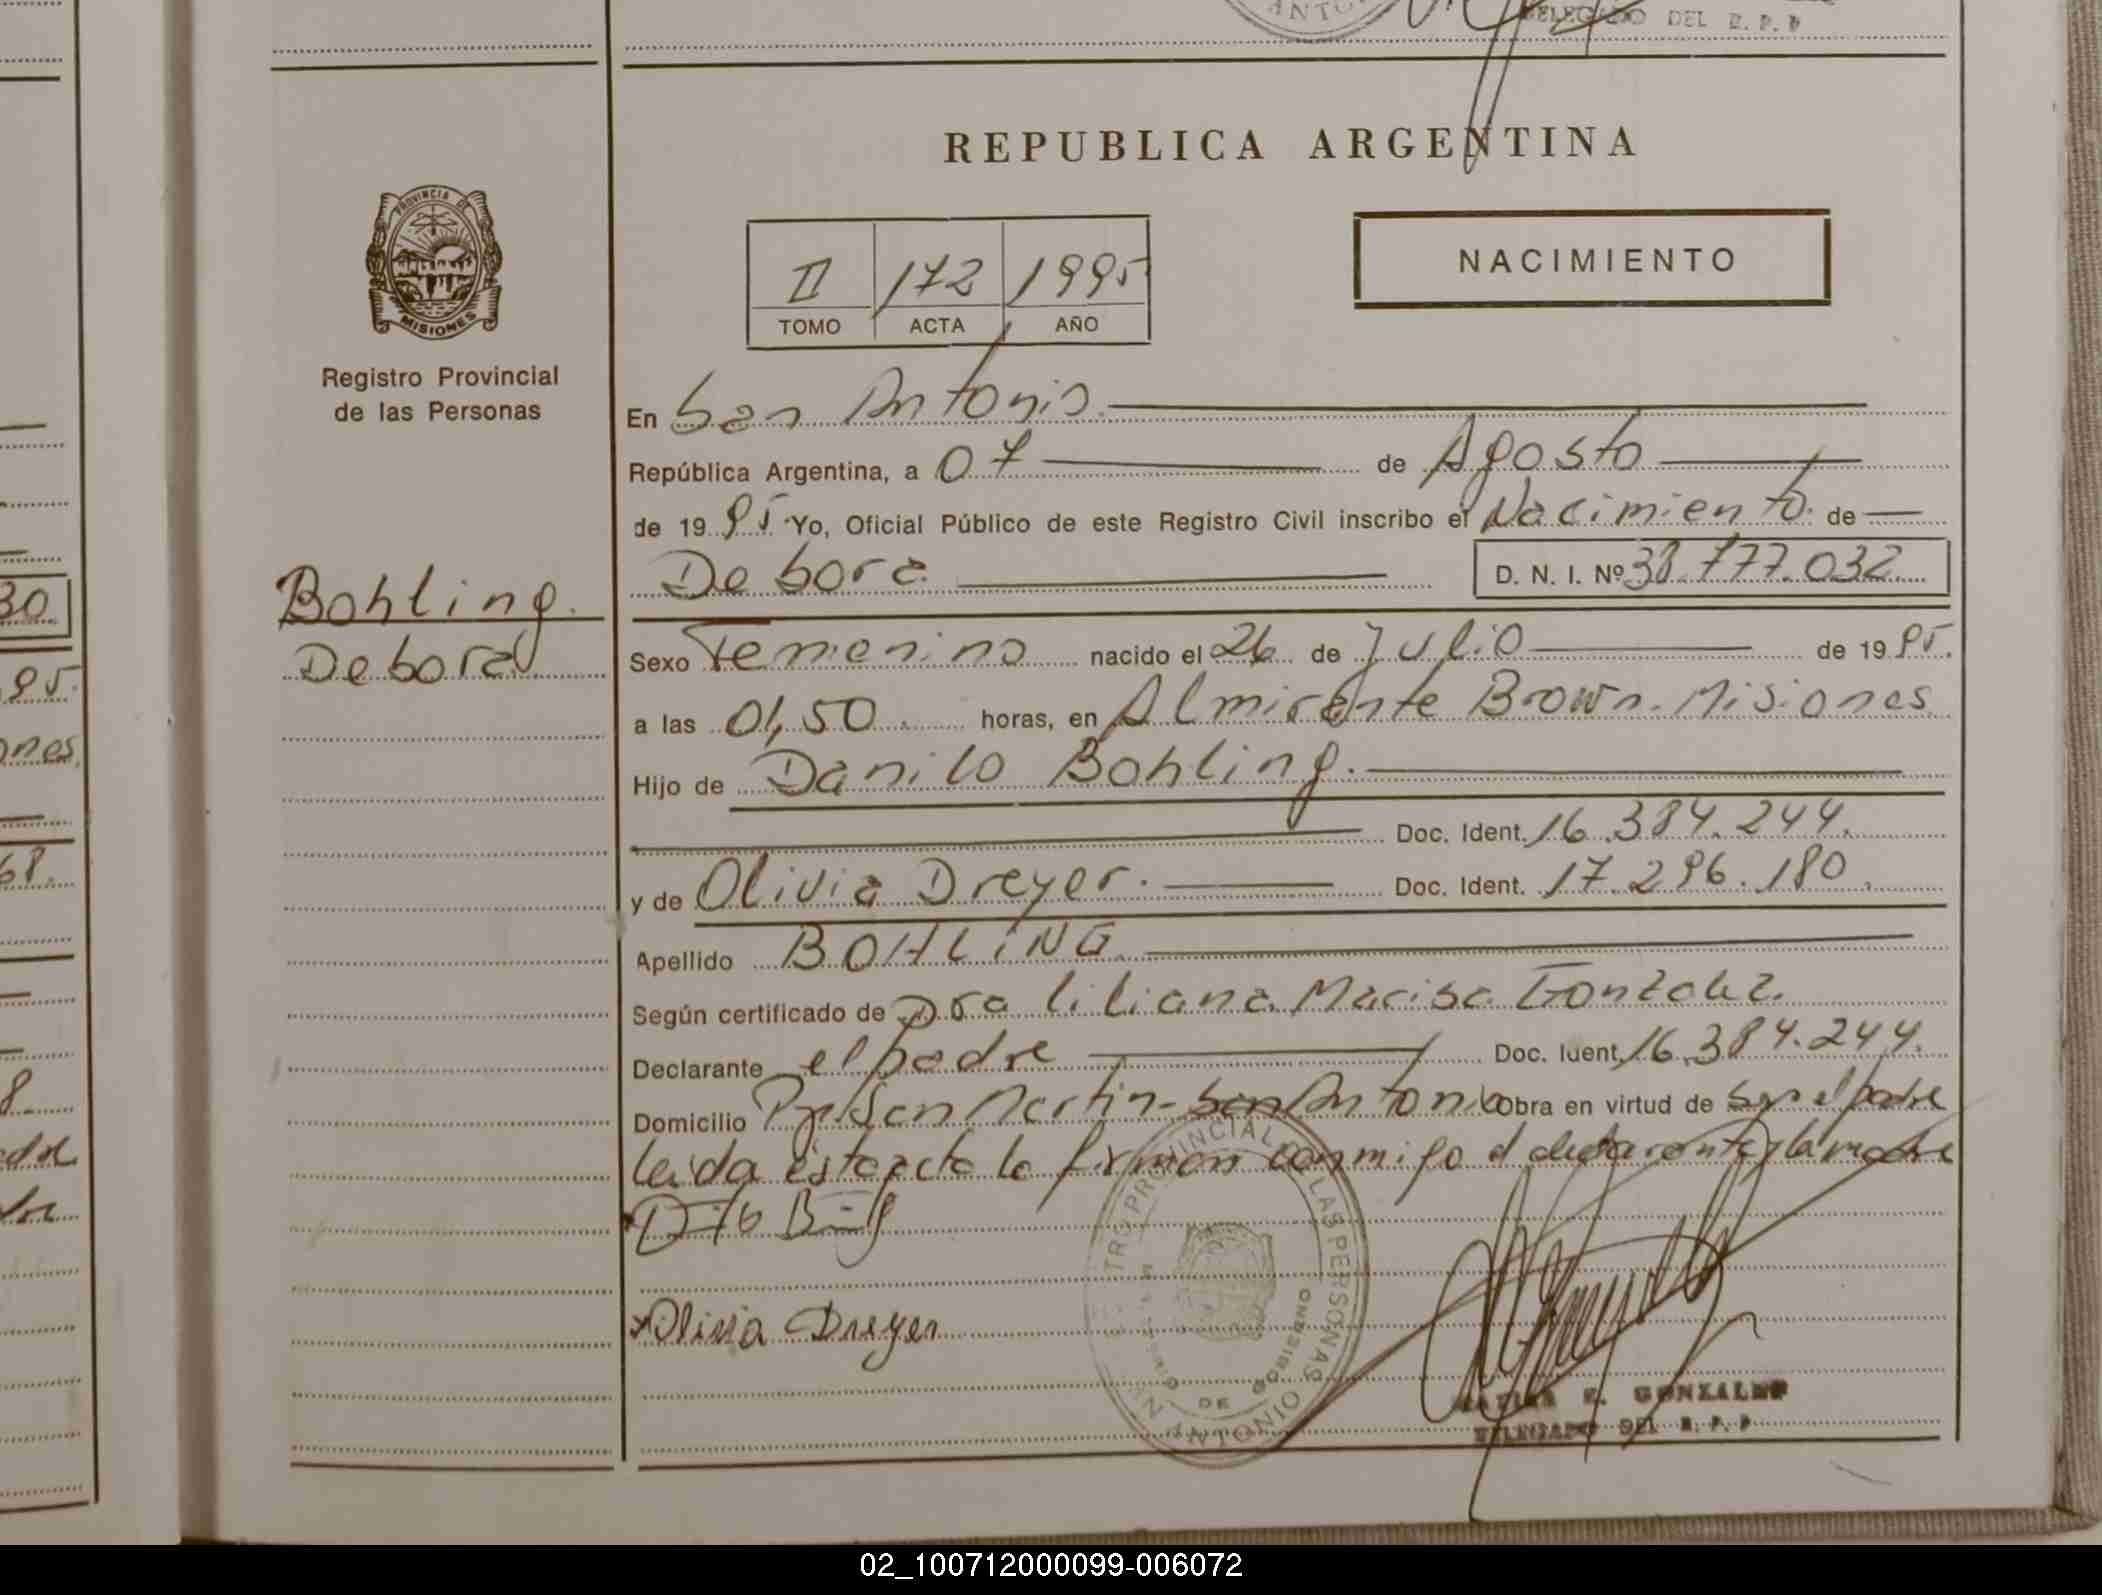 ANTO
DELEGADO DEL R. P. P
REPUBLICA ARGENTINA
PROVINCIA DE
MISIONES
II 172 1995
TOMO ACTA AÑO
NACIMIENTO
Registro Provincial
de las Personas
En San Antonio.
República Argentina, a 07 de Agosto
de 1995. Yo, Oficial Público de este Registro Civil inscribo el Nacimiento de
Debora D. N. I. Nº 38.777.032
Bohling.
Debora
Sexo Femenino nacido el 26 de Julio de 1995.
a las 01,50 horas, en Almirante Brown. Misiones
Hijo de Danilo Bohling.
Doc. Ident. 16.384.244.
y de Olivia Dreyer. Doc. Ident. 17.296.180.
Apellido BOHLING.
Según certificado de Dra Liliana Marisa Gonzalez.
Declarante el padre Doc. Ident. 16.384.244.
Domicilio Pje San Martin - San Antonio obra en virtud de ser el padre
leida esta acta la firman conmigo el declarante y la madre
Olivia Dreyer
REGISTRO PROVINCIAL DE LAS PERSONAS
SAN ANTONIO
E. GONZALEZ
DELEGADO DEL R. P. P
30
95.
ones,
68.
8
02_100712000099-006072